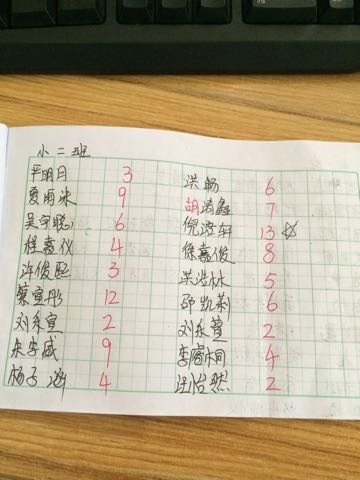 小二班
严明月 3 洪畅 6
夏雨沫 9 胡鑫 7
吴宇聪 6 倪浩轩 13 ☆
程嘉仪 4 徐嘉俊 8
许俊熙 3 洪浩林 5
蔡宣彤 12 邵凯莉 6
刘东宣 2 刘东萱 2
朱宇威 9 李睿桐 4
杨子 4 汪怡然 2